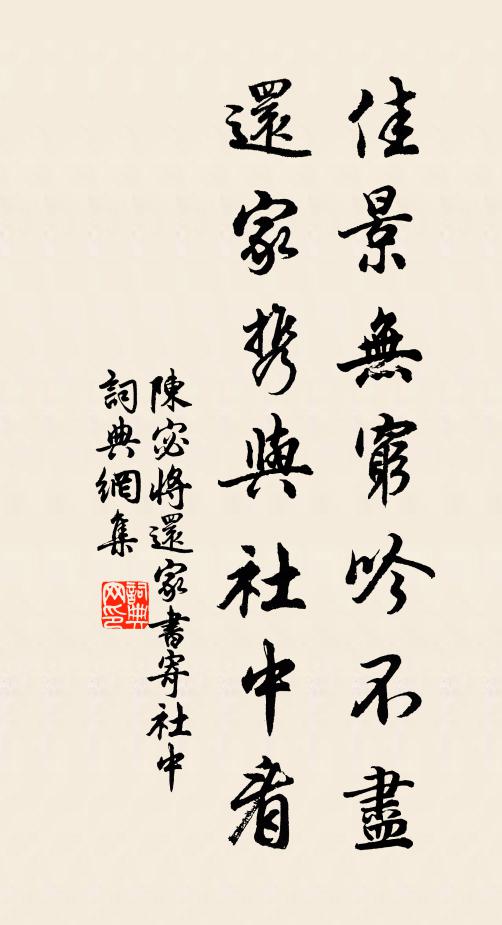 佳景無窮吟不盡
還家携與社中看
陳宓將還家書寄社中
詞典網集
詞典
网印